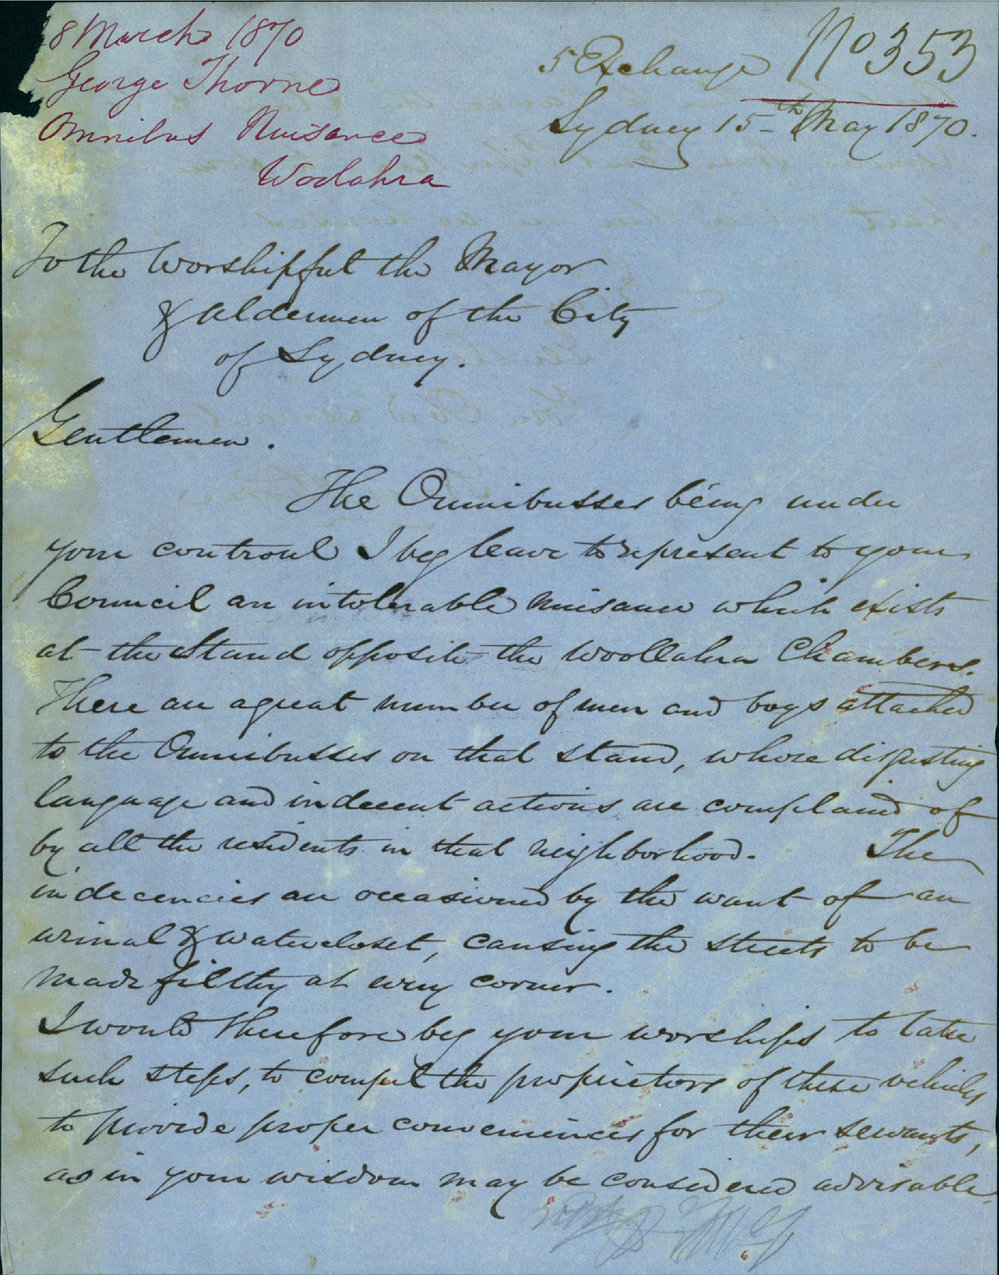 8 March 1870
George Thorne
Omnibus Nuisance
Wodahra
No 353
5 Exchange
Sydney 15th May 1870.
To the Worshipful the Mayor
& Aldermen of the City
of Sydney.
Gentlemen.
The Omnibusses being under
your controul I beg leave to represent to your
Council an intolerable nuisance which exists
at the Stand opposite the Woollahra Chambers.
There are a great number of men and boys attached
to the Omnibusses on that stand, whose disgusting
language and indecent actions are complained of
by all the residents in that neighborhood. The
indecencies are occasioned by the want of an
urinal & watercloset, causing the streets to be
made filthy at every corner.
I would therefore beg your worships to take
such steps, to compel the proprietors of these vehicles
to provide proper conveniences for their servants,
as in your wisdom may be considered advisable.